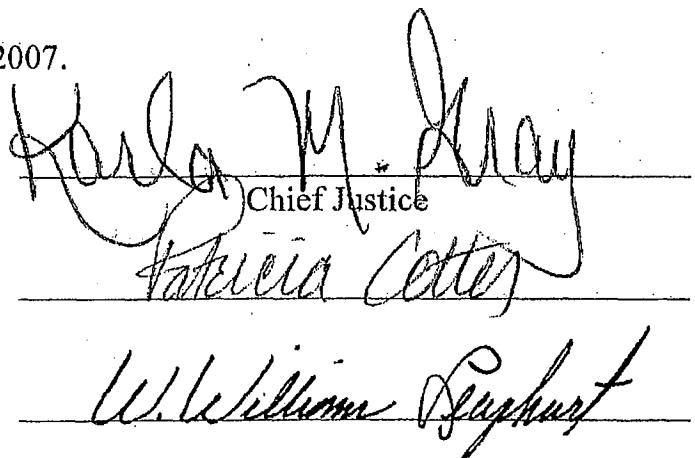 2007.
Karla M. Gray
Chief Justice
Patricia Cotter
W. William Leaphart